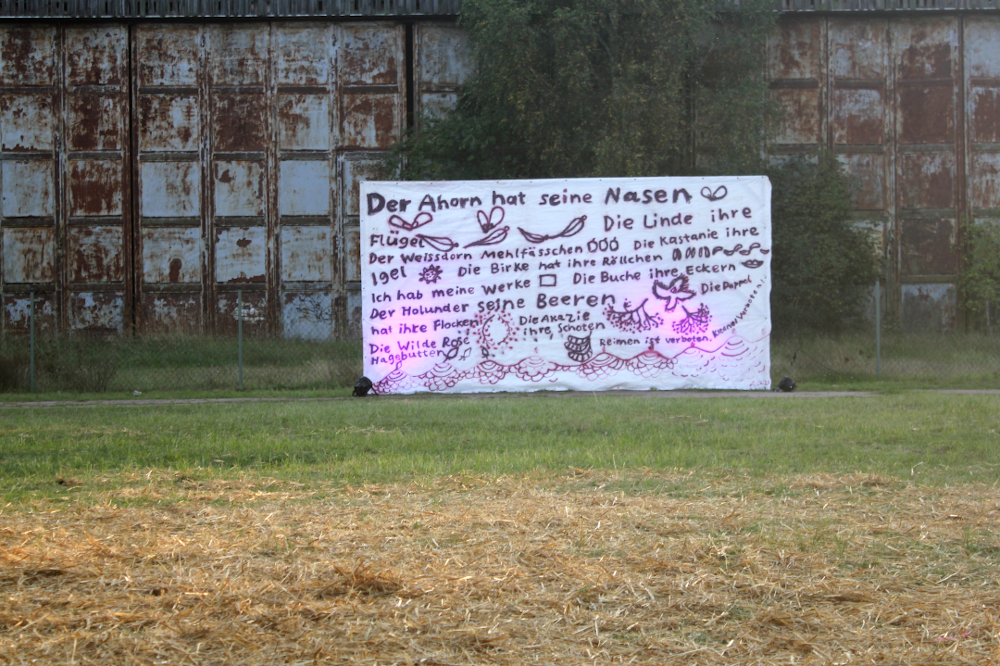 Der Ahorn hat seine Nasen
Die Linde ihre
Flügel
Der Weissdorn Mehlfässchen Die Kastanie ihre
Igel Die Birke hat ihre Röllchen
Ich hab meine Werke Die Buche ihre Eckern
Der Holunder seine Beeren Die Pappel
hat ihre Flocken Die Akazie
ihre Schoten
Die Wilde Rose
Hagebutten
Reimen ist verboten.